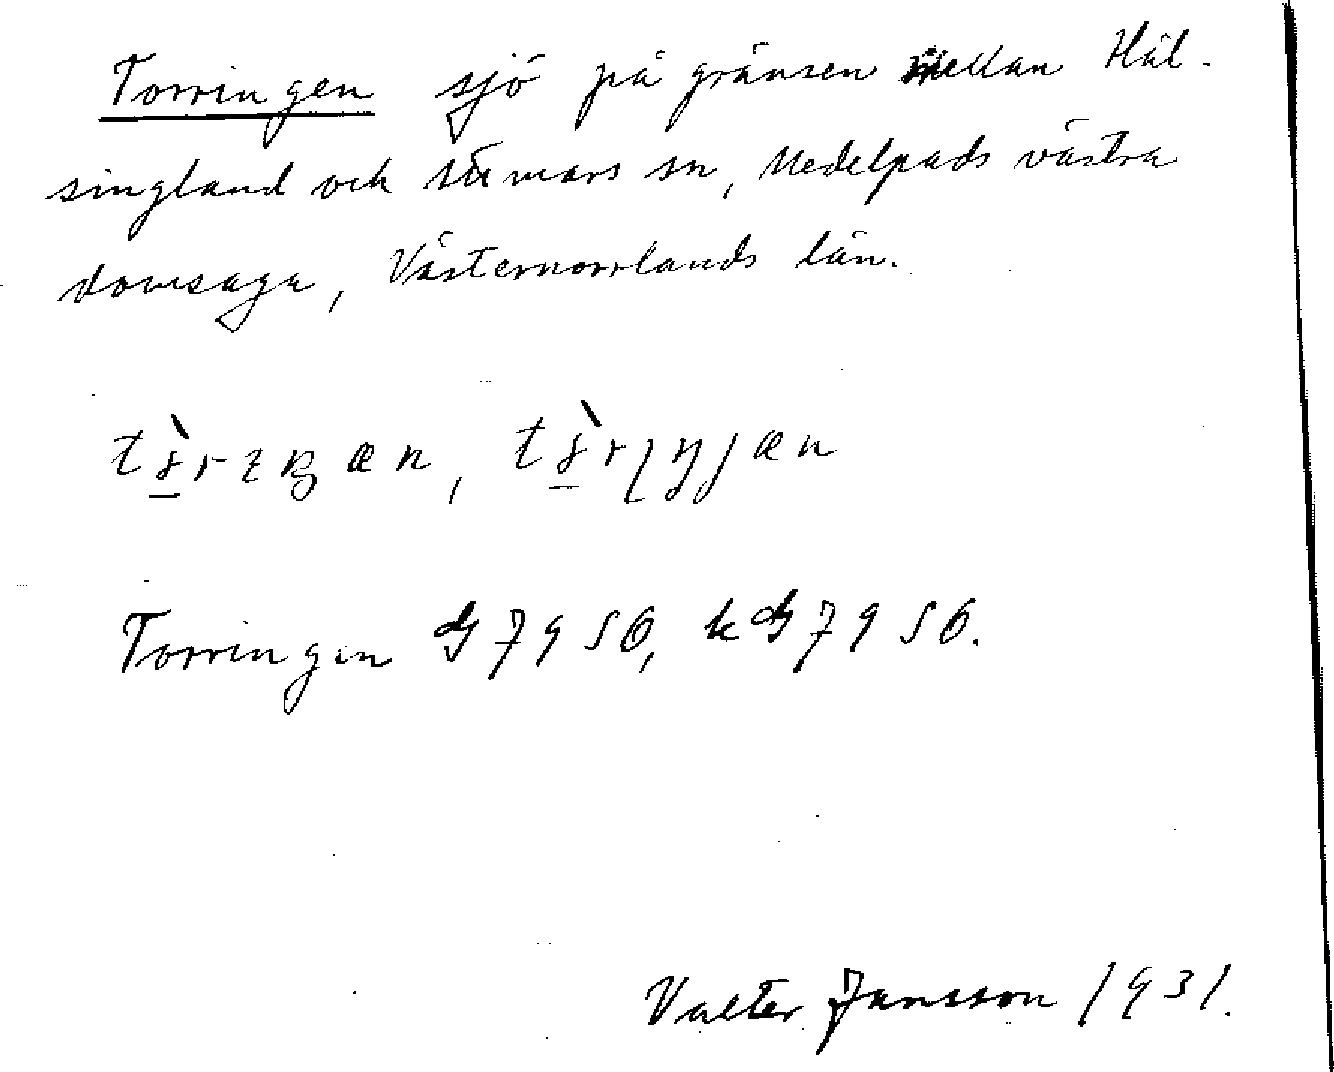 Torringen sjö på gränsen mellan Häl-
singland och sn, Medelpads västra
domsaga, Västernorrlands län.
Torringen G 7956, kG 7956.
Valter Jansson 1931.